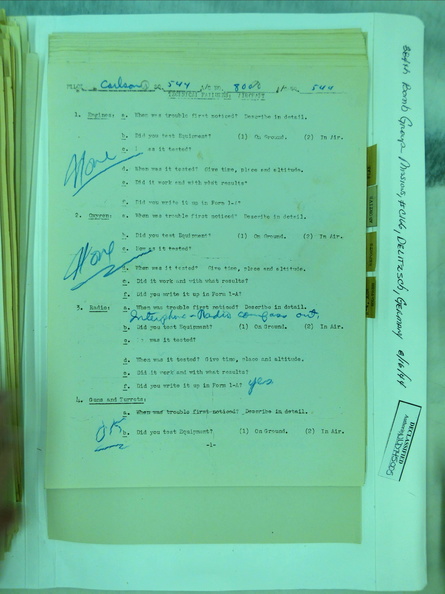 Carlson SQ. 544 A/C NO. 8008 544
TECHNICAL FAILURES REPORT
1. Engines: a. When was trouble first noticed? Describe in detail.
b. Did you test Equipment? (1) On Ground. (2) In Air.
c. is it tested?
None
d. When was it tested? Give time, place and altitude.
e. Did it work and with what results?
f. Did you write it up in Form 1-A?
2. Oxygen: a. When was trouble first noticed? Describe in detail.
b. Did you test Equipment? (1) On Ground. (2) In Air.
None
c. How is it tested?
d. When was it tested? Give time, place and altitude.
e. Did it work and with what results?
f. Did you write it up in Form 1-A?
3. Radio: a. When was trouble first noticed? Describe in detail.
Interphone - Radio compass out.
b. Did you test Equipment? (1) On Ground. (2) In Air.
c. was it tested?
d. When was it tested? Give time, place and altitude.
e. Did it work and with what results?
f. Did you write it up in Form 1-A? yes
4. Guns and Turrets:
a. When was trouble first noticed? Describe in detail.
OK
b. Did you test Equipment? (1) On Ground. (2) In Air.
-1-
384th Bomb Group Mission, #C166, Delitzsch, Germany 8/16/44
DECLASSIFIED
Authority